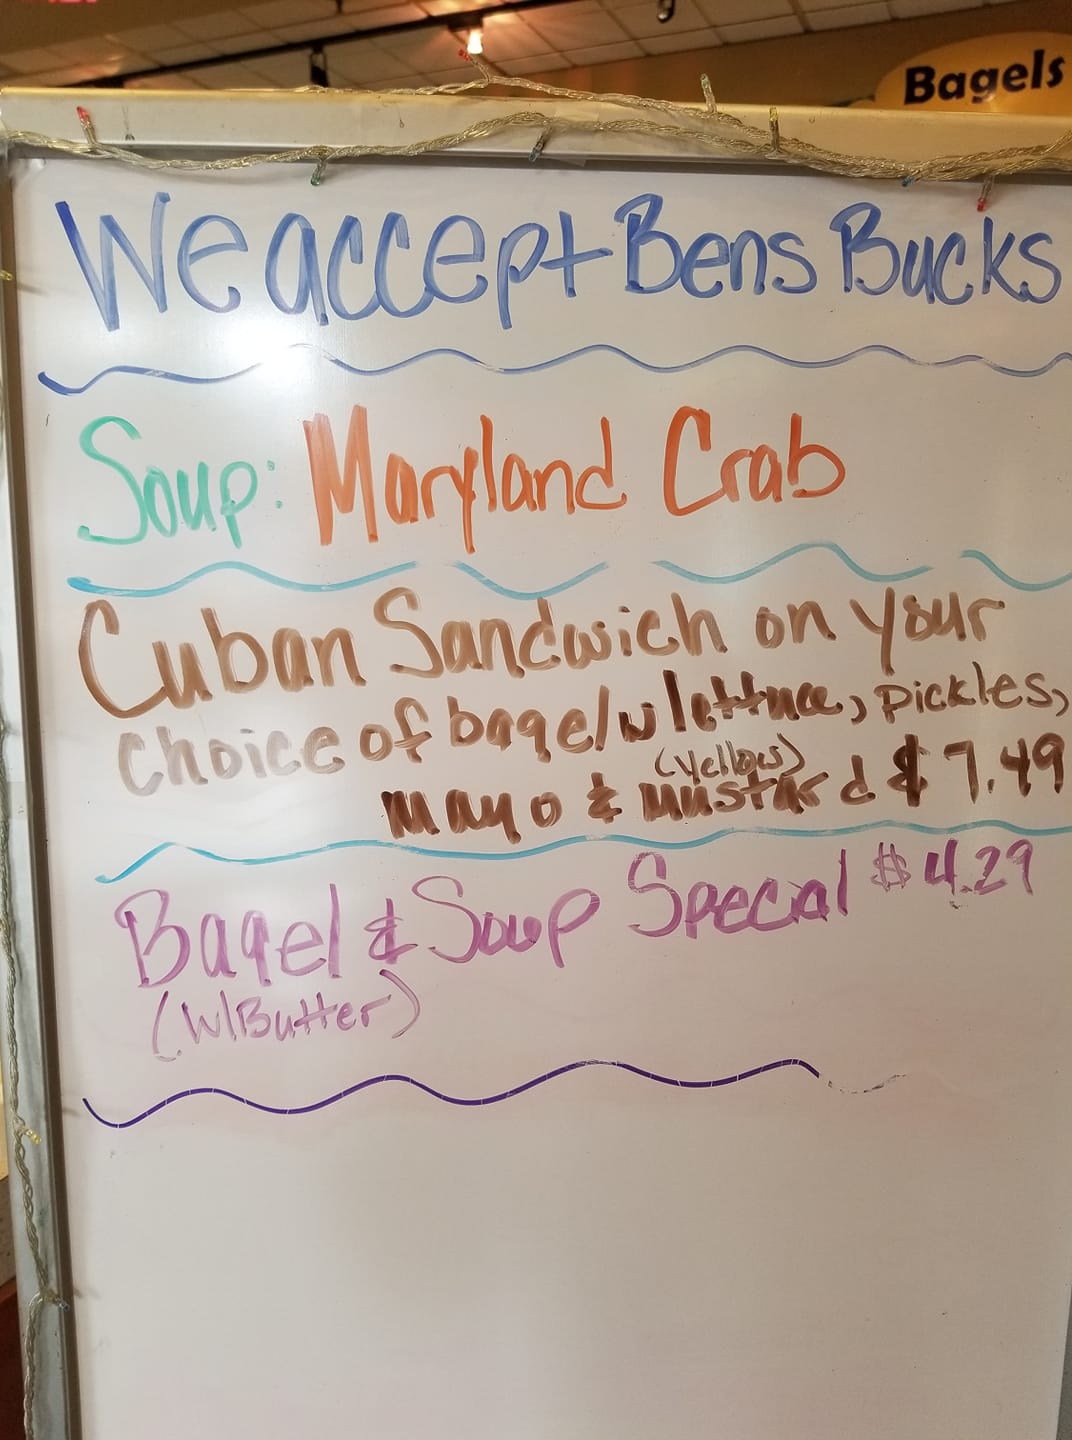 Bagels
We accept Bens Bucks
Soup: Maryland Crab
Cuban Sandwich on your
choice of bagel w/lettuce, pickles,
(yellow)
mayo & mustard $7.49
Bagel & Soup Special $4.29
(w/Butter)